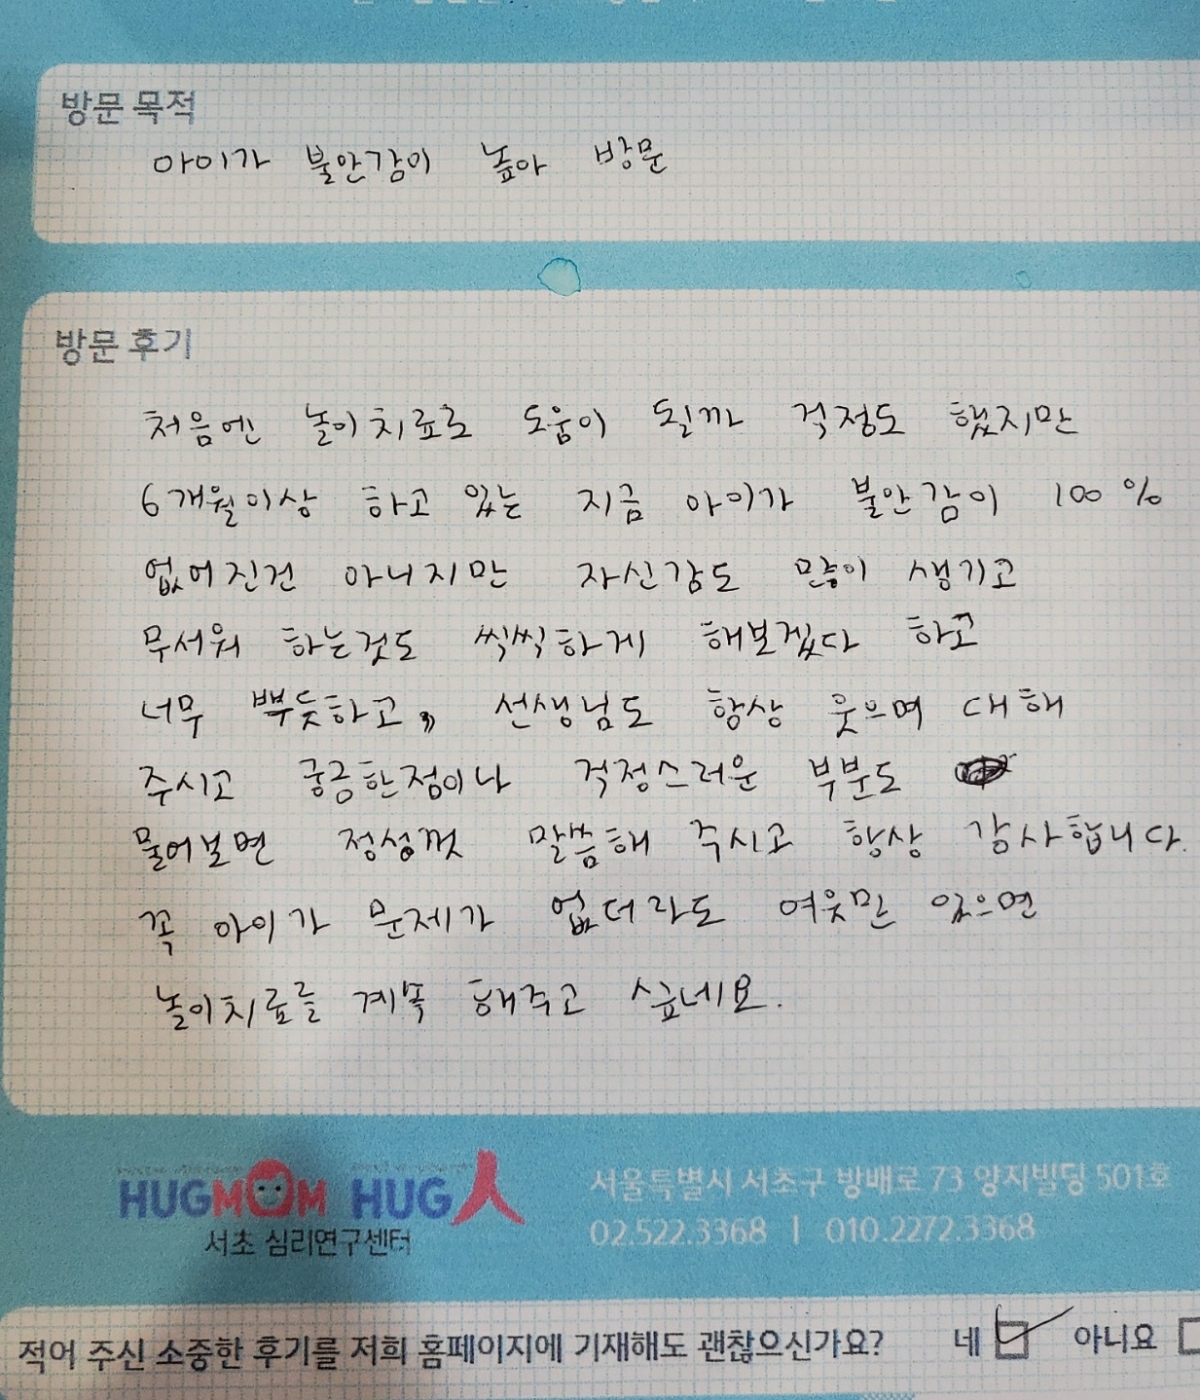 방문 목적
아이가 불안감이 높아 방문
방문 후기
처음엔 놀이치료로 도움이 될까 걱정도 했지만
6개월이상 하고 있는 지금 아이가 불안감이 100%
없어진건 아니지만 자신감도 많이 생기고
무서워 하는것도 씩씩하게 해보겠다 하고
너무 뿌듯하고,, 선생님도 항상 웃으며 대해
주시고 궁금한점이나 걱정스러운 부분도
물어보면 정성껏 말씀해 주시고 항상 감사합니다.
꼭 아이가 문제가 없더라도 여윳만 있으면
놀이치료를 계속 해주고 싶네요.
HUGMOM HUG人
서초 심리연구센터
서울특별시 서초구 방배로 73 양지빌딩 501호
02.522.3368 | 010.2272.3368
적어 주신 소중한 후기를 저희 홈페이지에 기재해도 괜찮으신가요? 네 아니요